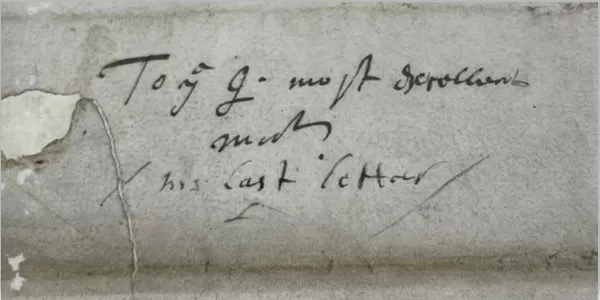 To yͤ Q. most excellent
matⁱᵉ
his last letter